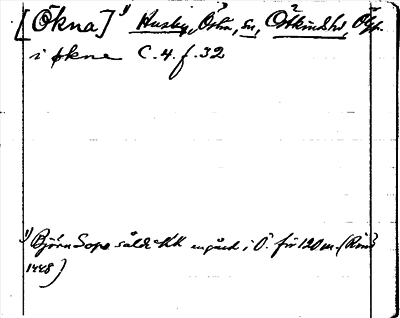 [Ökna] 1) Husby, Östra, sn, Östkinds hd, Ögl.
i økne C. 4. f. 32
1) Björn Sope sålde KK en gård i Ö. för 120 m. (
1448)